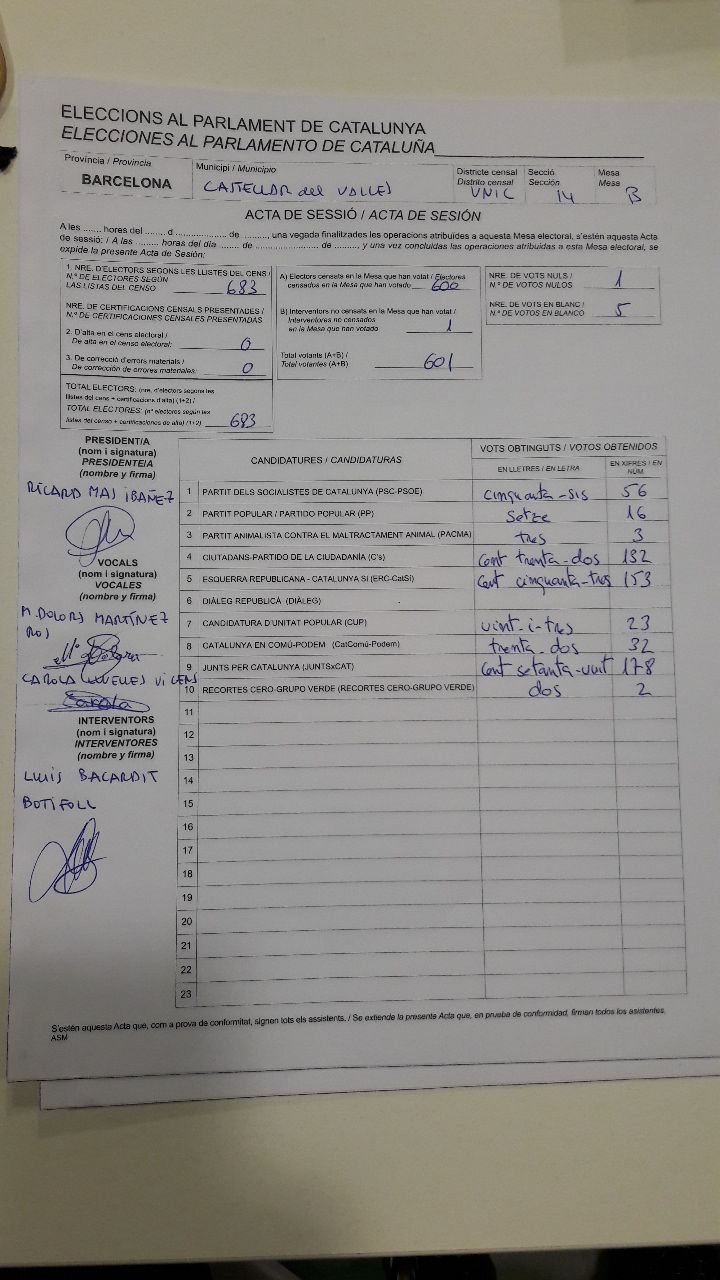 ELECCIONS AL PARLAMENT DE CATALUNYA
ELECCIONES AL PARLAMENTO DE CATALUÑA
Província / Provincia
BARCELONA
Municipi / Municipio
CASTELLAR del VALLES
Districte censal
Distrito censal
UNIC
Secció
Sección
14
Mesa
Mesa
B
ACTA DE SESSIÓ / ACTA DE SESIÓN
A les ........ hores del ...... d .................... de ........., una vegada finalitzades les operacions atribuïdes a aquesta Mesa electoral, s'estén aquesta Acta
de sessió: / A las ........ horas del día ....... de ...................... de ........, y una vez concluidas las operaciones atribuidas a esta Mesa electoral, se
expide la presente Acta de Sesión:
1. NRE. D'ELECTORS SEGONS LES LLISTES DEL CENS /
N.º DE ELECTORES SEGÚN
LAS LISTAS DEL CENSO 683
NRE. DE CERTIFICACIONS CENSALS PRESENTADES /
N.º DE CERTIFICACIONES CENSALES PRESENTADAS
2. D'alta en el cens electoral /
De alta en el censo electoral: 0
3. De correcció d'errors materials /
De corrección de errores materiales: 0
TOTAL ELECTORS: (nre. d'electors segons les
llistes del cens + certificacions d'alta) (1+2) /
TOTAL ELECTORES: (nº electores según las
listas del censo + certificaciones de alta) (1+2) 683
A) Electors censats en la Mesa que han votat / Electores
censados en la Mesa que han votado 600
B) Interventors no censats en la Mesa que han votat /
Interventores no censados
en la Mesa que han votado 1
Total votants (A+B) /
Total votantes (A+B) 601
NRE. DE VOTS NULS /
N.º DE VOTOS NULOS 1
NRE. DE VOTS EN BLANC /
N.º DE VOTOS EN BLANCO 5
PRESIDENT/A
(nom i signatura)
PRESIDENTE/A
(nombre y firma)
RICARD MAS IBAÑEZ
VOCALS
(nom i signatura)
VOCALES
(nombre y firma)
M. DOLORS MARTÍNEZ
ROS
Mª Dolors
CAROLA VILENS
Carola
INTERVENTORS
(nom i signatura)
INTERVENTORES
(nombre y firma)
LLUIS BACARDIT
BOTIFOLL
CANDIDATURES / CANDIDATURAS
VOTS OBTINGUTS / VOTOS OBTENIDOS
EN LLETRES / EN LETRA
EN XIFRES / EN NUM.
1 PARTIT DELS SOCIALISTES DE CATALUNYA (PSC-PSOE) cinquanta-sis 56
2 PARTIT POPULAR / PARTIDO POPULAR (PP) setze 16
3 PARTIT ANIMALISTA CONTRA EL MALTRACTAMENT ANIMAL (PACMA) tres 3
4 CIUTADANS-PARTIDO DE LA CIUDADANÍA (C's) Cent trenta-dos 132
5 ESQUERRA REPUBLICANA - CATALUNYA SÍ (ERC-CatSí) Cent cinquanta-tres 153
6 DIÀLEG REPUBLICÀ (DIÀLEG)
7 CANDIDATURA D'UNITAT POPULAR (CUP) vint-i-tres 23
8 CATALUNYA EN COMÚ-PODEM (CatComú-Podem) trenta-dos 32
9 JUNTS PER CATALUNYA (JUNTSxCAT) Cent setanta-vuit 178
10 RECORTES CERO-GRUPO VERDE (RECORTES CERO-GRUPO VERDE) dos 2
11
12
13
14
15
16
17
18
19
20
21
22
23
S'estén aquesta Acta que, com a prova de conformitat, signen tots els assistents. / Se extiende la presente Acta que, en prueba de conformidad, firman todos los asistentes.
ASM